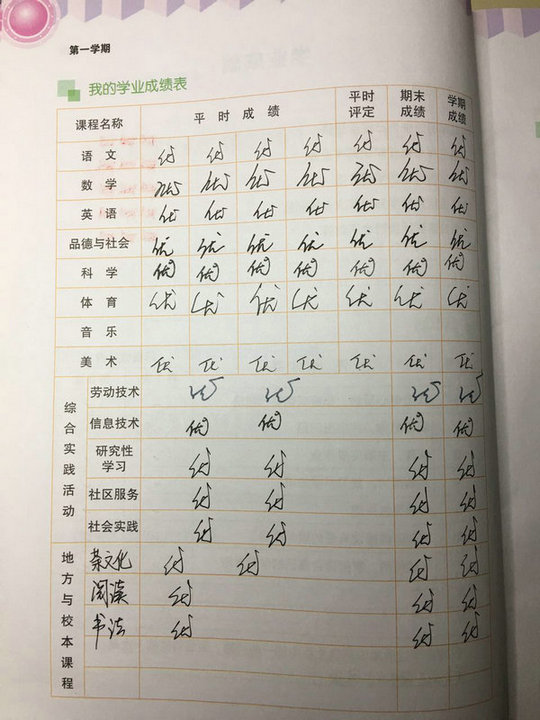 第一学期
我的学业成绩表
课程名称 平时成绩 平时评定 期末成绩 学期成绩
语文 优 优 优 优 优 优 优
数学 优 优 优 优 优 优 优
英语 优 优 优 优 优 优 优
品德与社会 优 优 优 优 优 优 优
科学 优 优 优 优 优 优 优
体育 优 优 优 优 优 优 优
音乐
美术 优 优 优 优 优 优 优
综合实践活动
劳动技术 优 优 优 优
信息技术 优 优 优 优
研究性学习 优 优 优 优
社区服务 优 优 优 优
社会实践 优 优 优 优
地方与校本课程
茶文化 优 优 优 优
阅读 优 优 优
书法 优 优 优